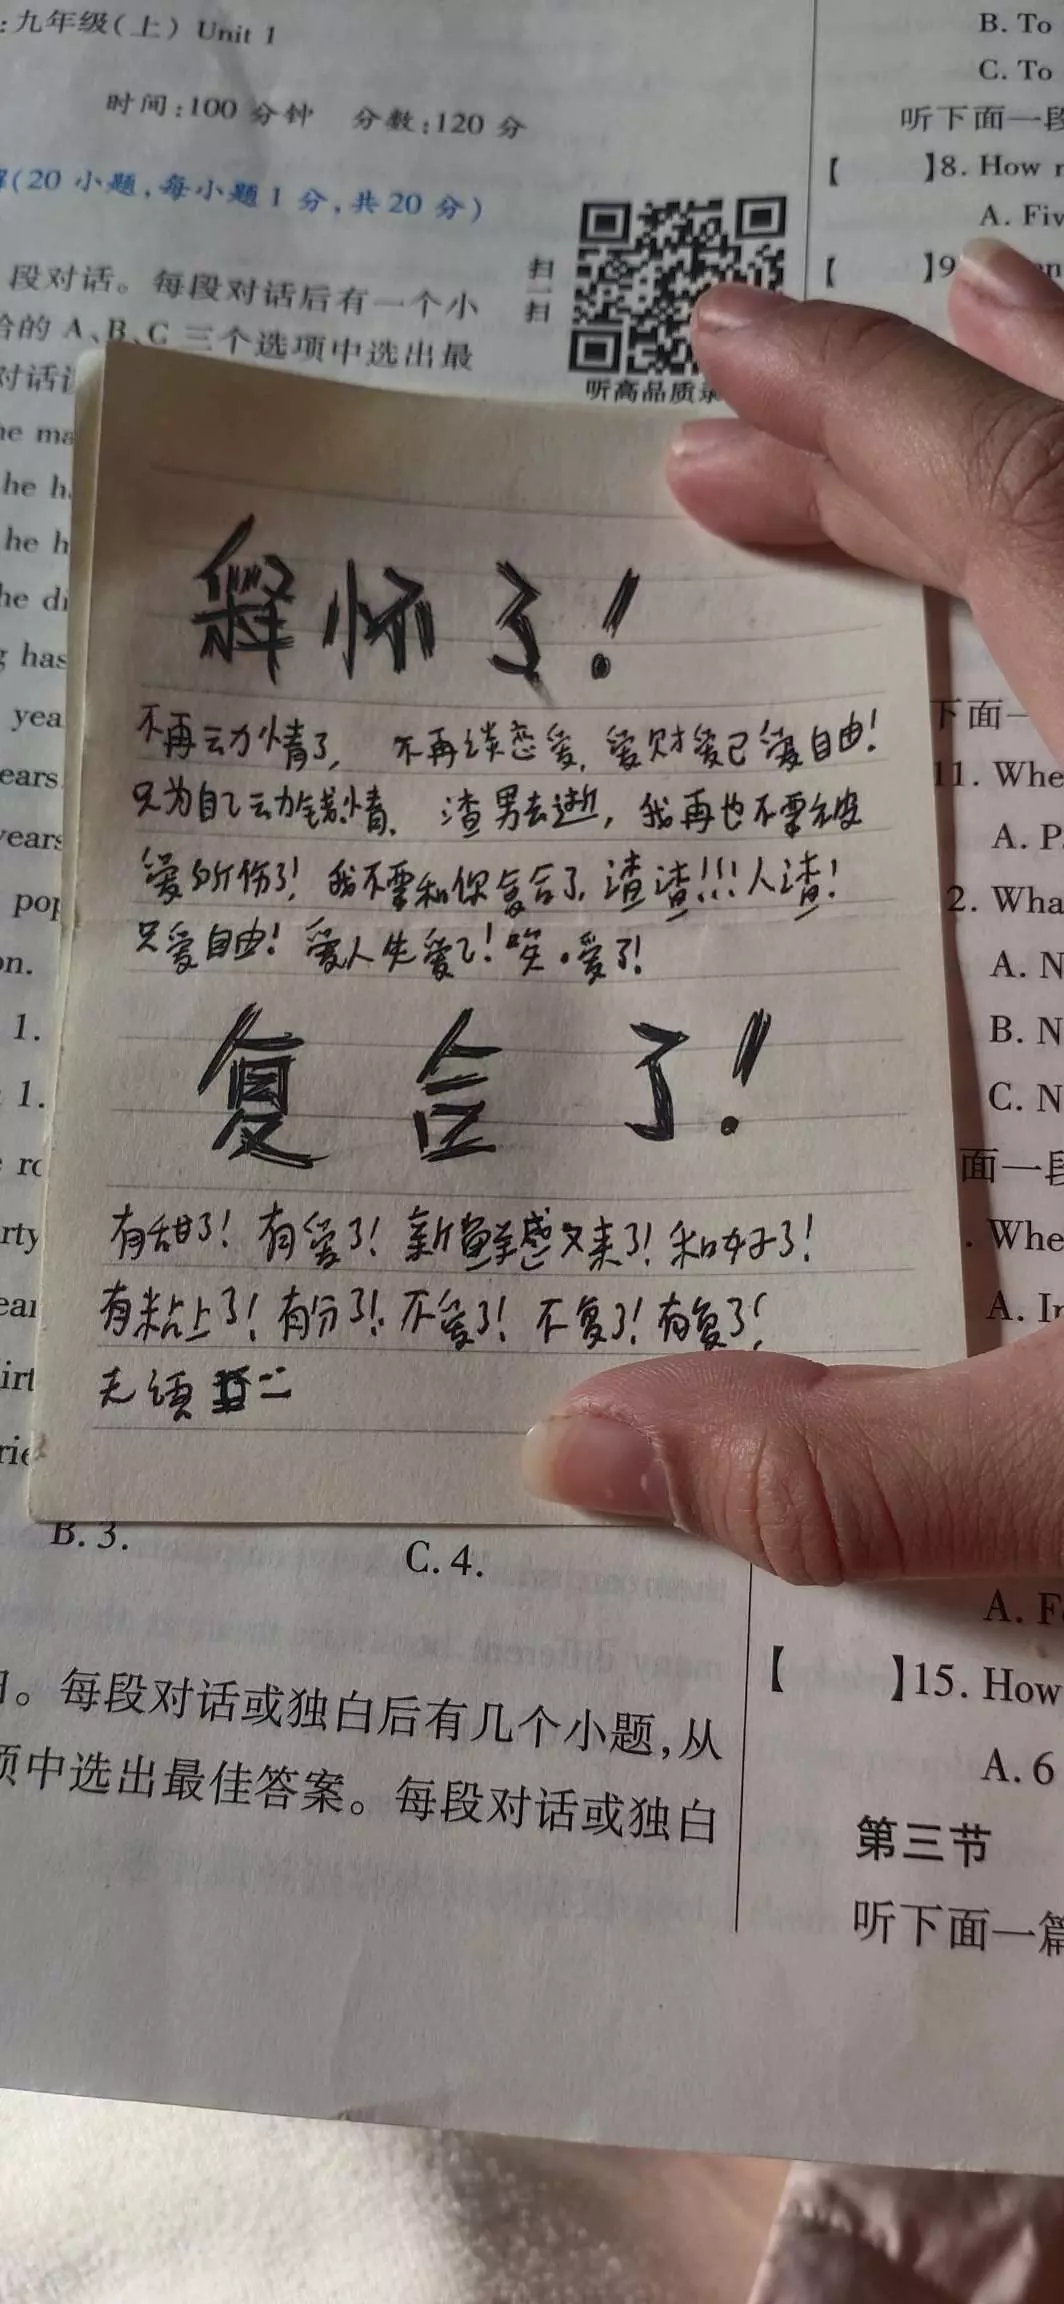 :九年级(上) Unit 1
时间:100 分钟 分数:120 分
(20 小题,每小题 1 分,共 20 分)
段对话。每段对话后有一个小
的 A、B、C 三个选项中选出最
对话
扫一扫
听高品质
he h
he h
has
yea
ears
years
pop
on.
1.
1.
释怀了!
不再动情了, 不再谈恋爱, 爱财爱己爱自由!
只为自己动钱情、渣男去逝, 我再也不要被
爱所伤了! 我不要和你复合了, 渣渣!!!人渣!
只爱自由! 爱人先爱己! 唉。爱了!
复合了!
有甜了! 有爱了! 新鲜感又来了! 和好了!
有粘上了! 有分了! 不爱了! 不复了! 有复了!
无须
B. 3.
C. 4.
。每段对话或独白后有几个小题,从
项中选出最佳答案。每段对话或独白
B. To
C. To
听下面一段
【 】8. How
A. Fiv
【 】9
下面一
11. Whe
A. P
2. Wha
A. N
B. N
C. N
面一段
. Whe
A. In
A. F
【 】15. How
A. 6
第三节
听下面一篇